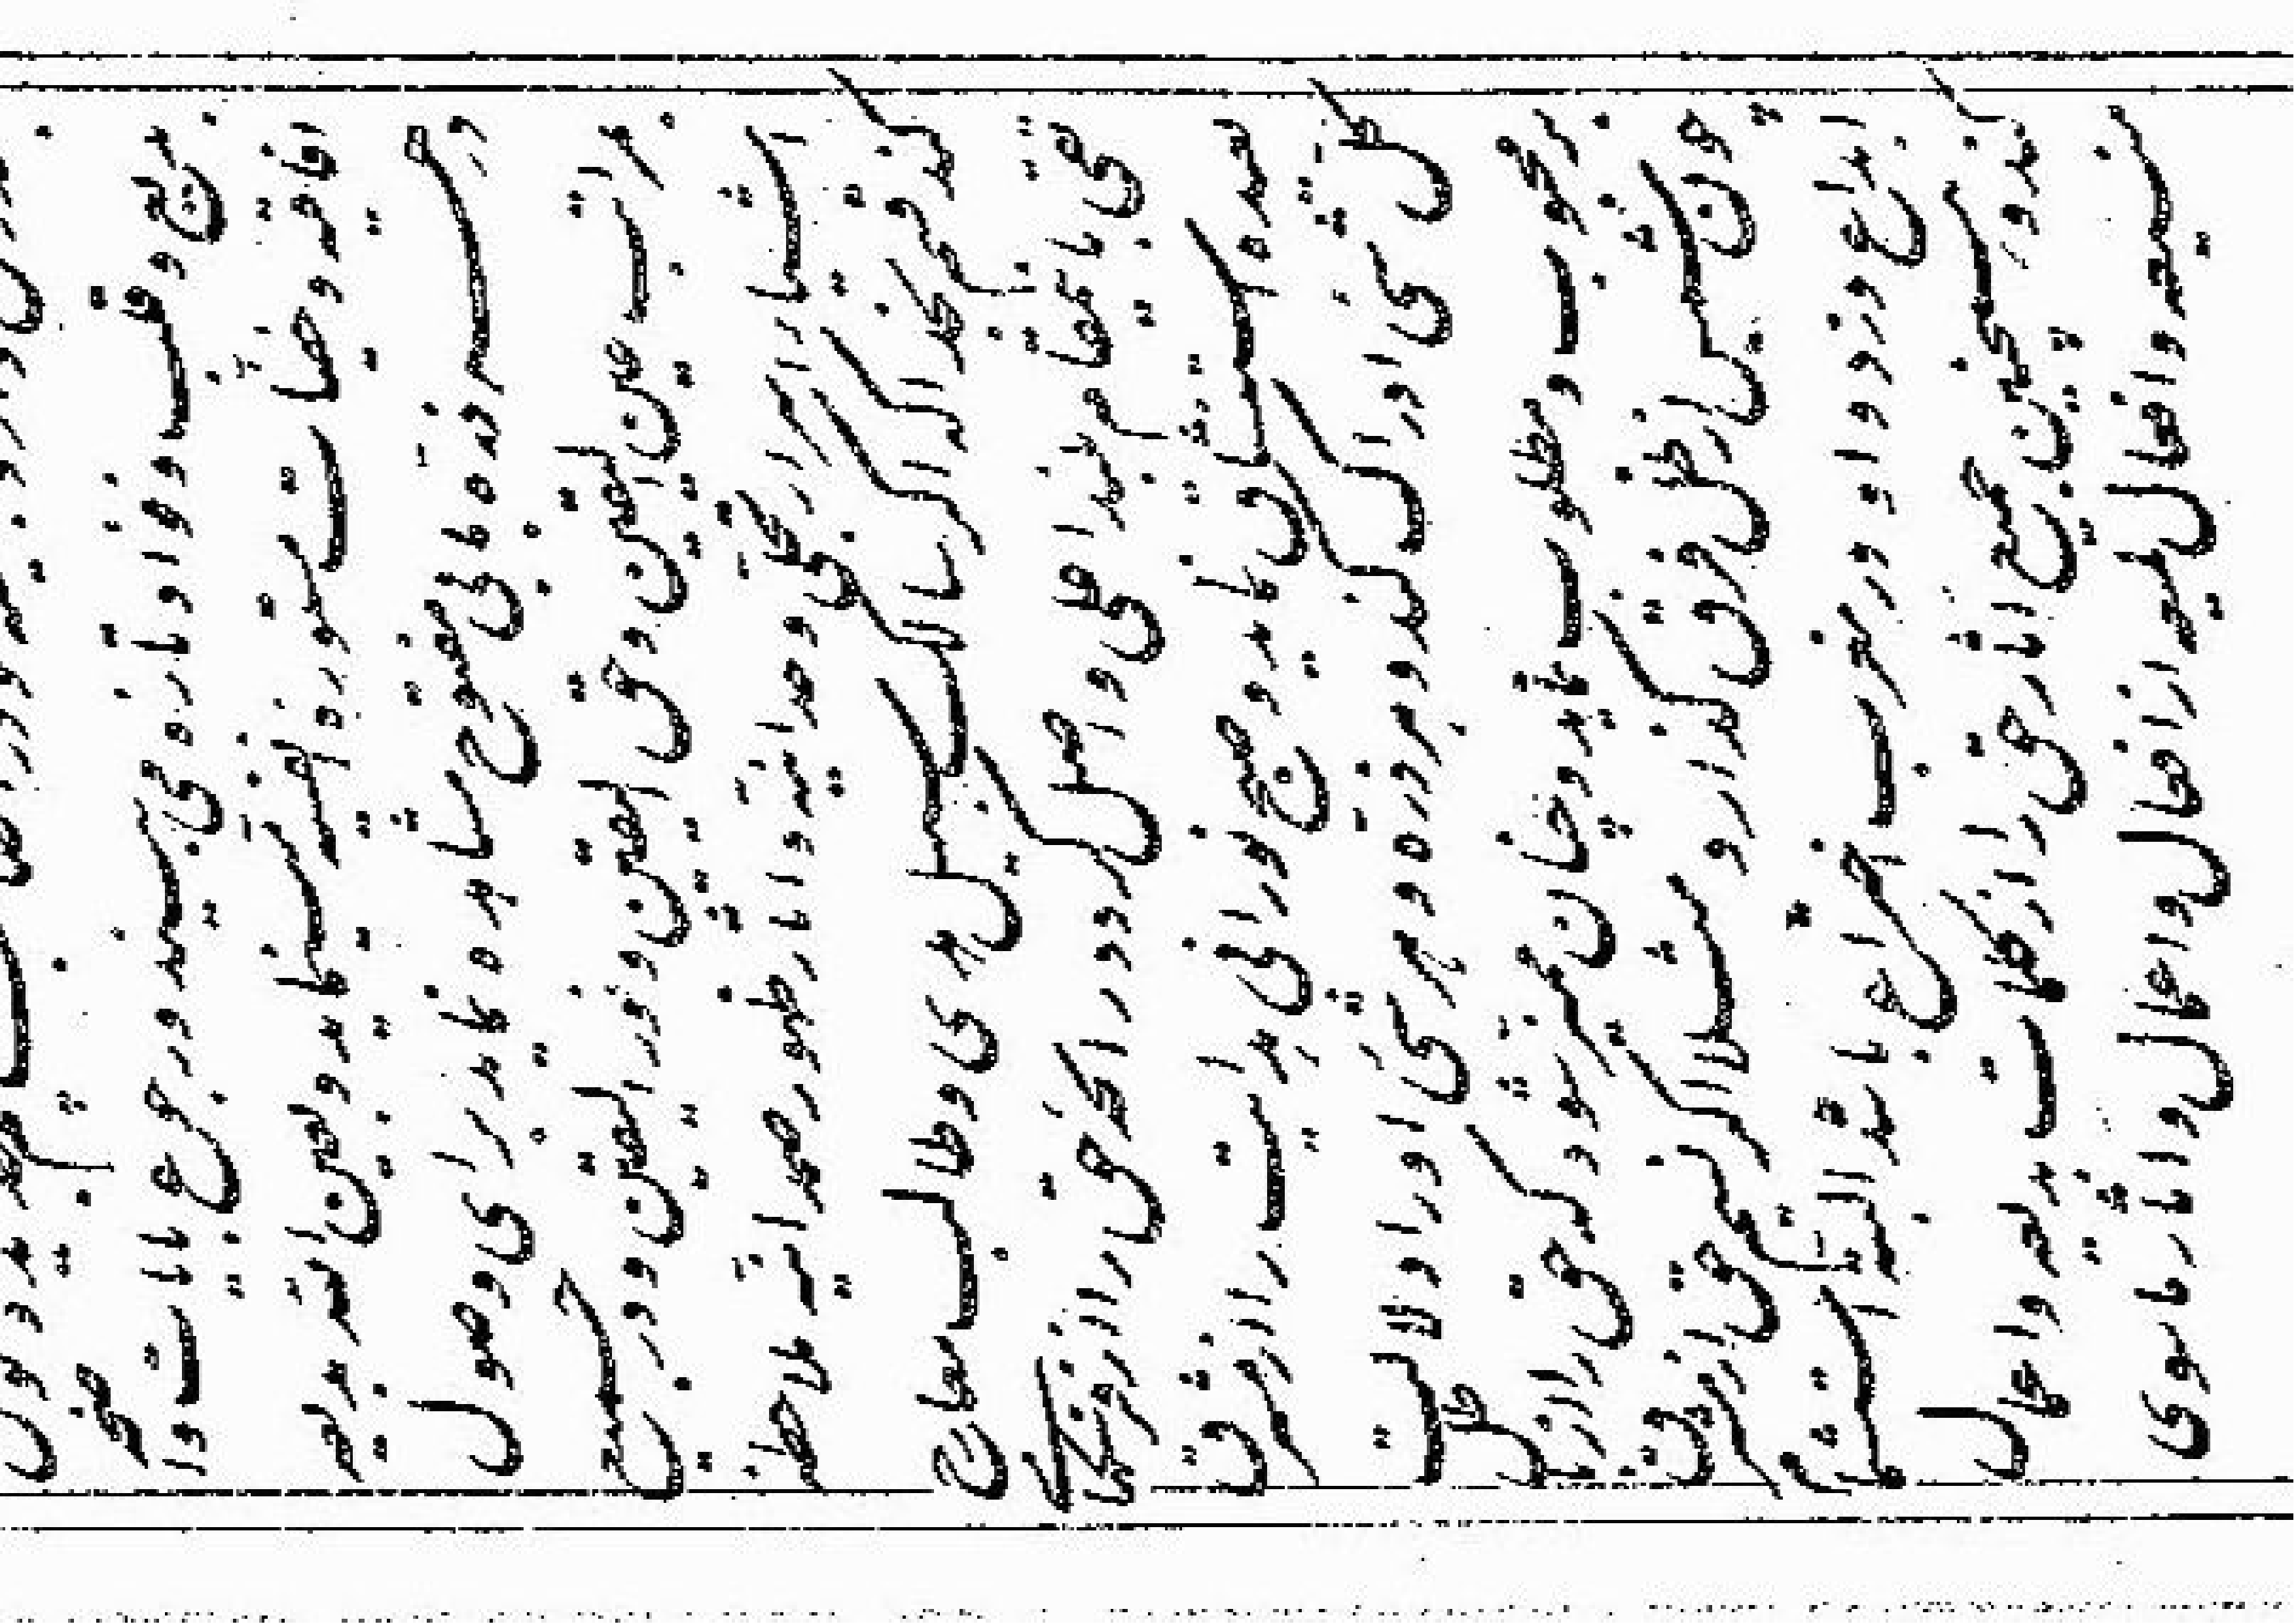 بین و قلب و فؤاد تازه می بیند و رجوع بآیات واضحه
آفاقیه و خفیات مستوره انفسیه مینماید و بعین الله بدیعه
در هر ذره بابی مفتوح مشاهده نماید برای وصول
بمراتب عین الیقین و حق الیقین و نور الیقین و در جمیع
اشیا اسرار تجلی وحدانیه و آثار ظهور صمدانیه ملاحظه
کند قسم بخدا که اگر سالک سبیل هدی و طالب معارج
تقی باین مقام بلند اعلی واصل گردد رائحه حق را از فرسنگهای
بعیده استنشاق نماید و صبح نورانی هدایت را از مشرق
کل شی ادراک کند و هر ذره و هر شی او را دلالت
بر محبوب و مطلوب نماید و چنان ممیز شود که حق را از باطل
چون شمس از ظل فرق گذارد مثلا اگر نسیم حق از مشرق
ابداع وزد و او در مغرب اختراع باشد البته استشمام
کند و همچنین جمیع آثار حق را از کلمات بدیعه و اعمال
منیعه و افعال لمیعه از افعال و اعمال و آثار ما سوی